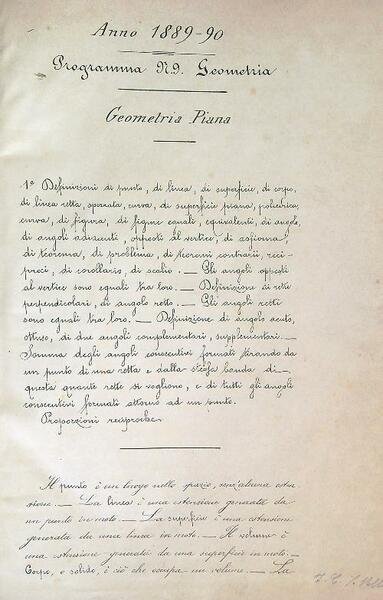 Anno 1889-90
Programma Nº9. Geometria
Geometria Piana
1ª Definizioni di punto, di linea, di superficie, di corpo,
di linea retta, spezzata, curva, di superficie piana, poliedrica,
curva, di figura, di figure eguali, equivalenti, di angolo,
di angoli adiacenti, opposti al vertice, di assioma,
di teorema, di problema, di teoremi contrarii, reci-
proci, di corollario, di scolio. — Gli angoli opposti
al vertice sono eguali tra loro. — Definizione di rette
perpendicolari, di angolo retto. — Gli angoli retti
sono eguali tra loro. — Definizione di angolo acuto,
ottuso, di due angoli complementari, supplementari. —
Somma degli angoli consecutivi formati tirando da
un punto di una retta e dalla stessa banda di
questa quante rette si vogliono, e di tutti gli angoli
consecutivi formati attorno ad un punto.
Proporzioni reciproche.
Il punto è un luogo nello spazio, senz'alcuna esten-
sione. — La linea è una estensione generata da
un punto in moto. — La superficie è una estensione
generata da una linea in moto. — Il volume è
una estensione generata da una superficie in moto. —
Corpo, o solido, è ciò che occupa un volume. — La